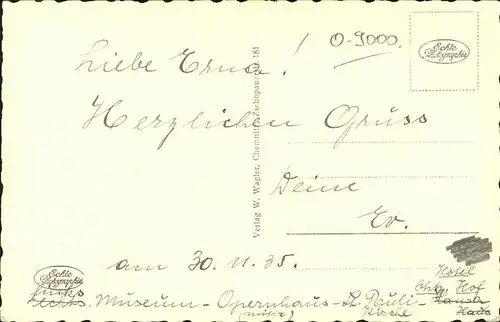 O-9000.
Echte Photographie
Liebe Erna!
Herzlichen Gruss
Deine
Ev.
am 30. 11. 35.
Verlag W. Wagler, Chemnitz, Zschopauerstr. 181
Echte Photographie
links
Museum - Opernhaus - St. Pauli-
(mitte) Kirche
Hotel
Chtz. Hof
Haus